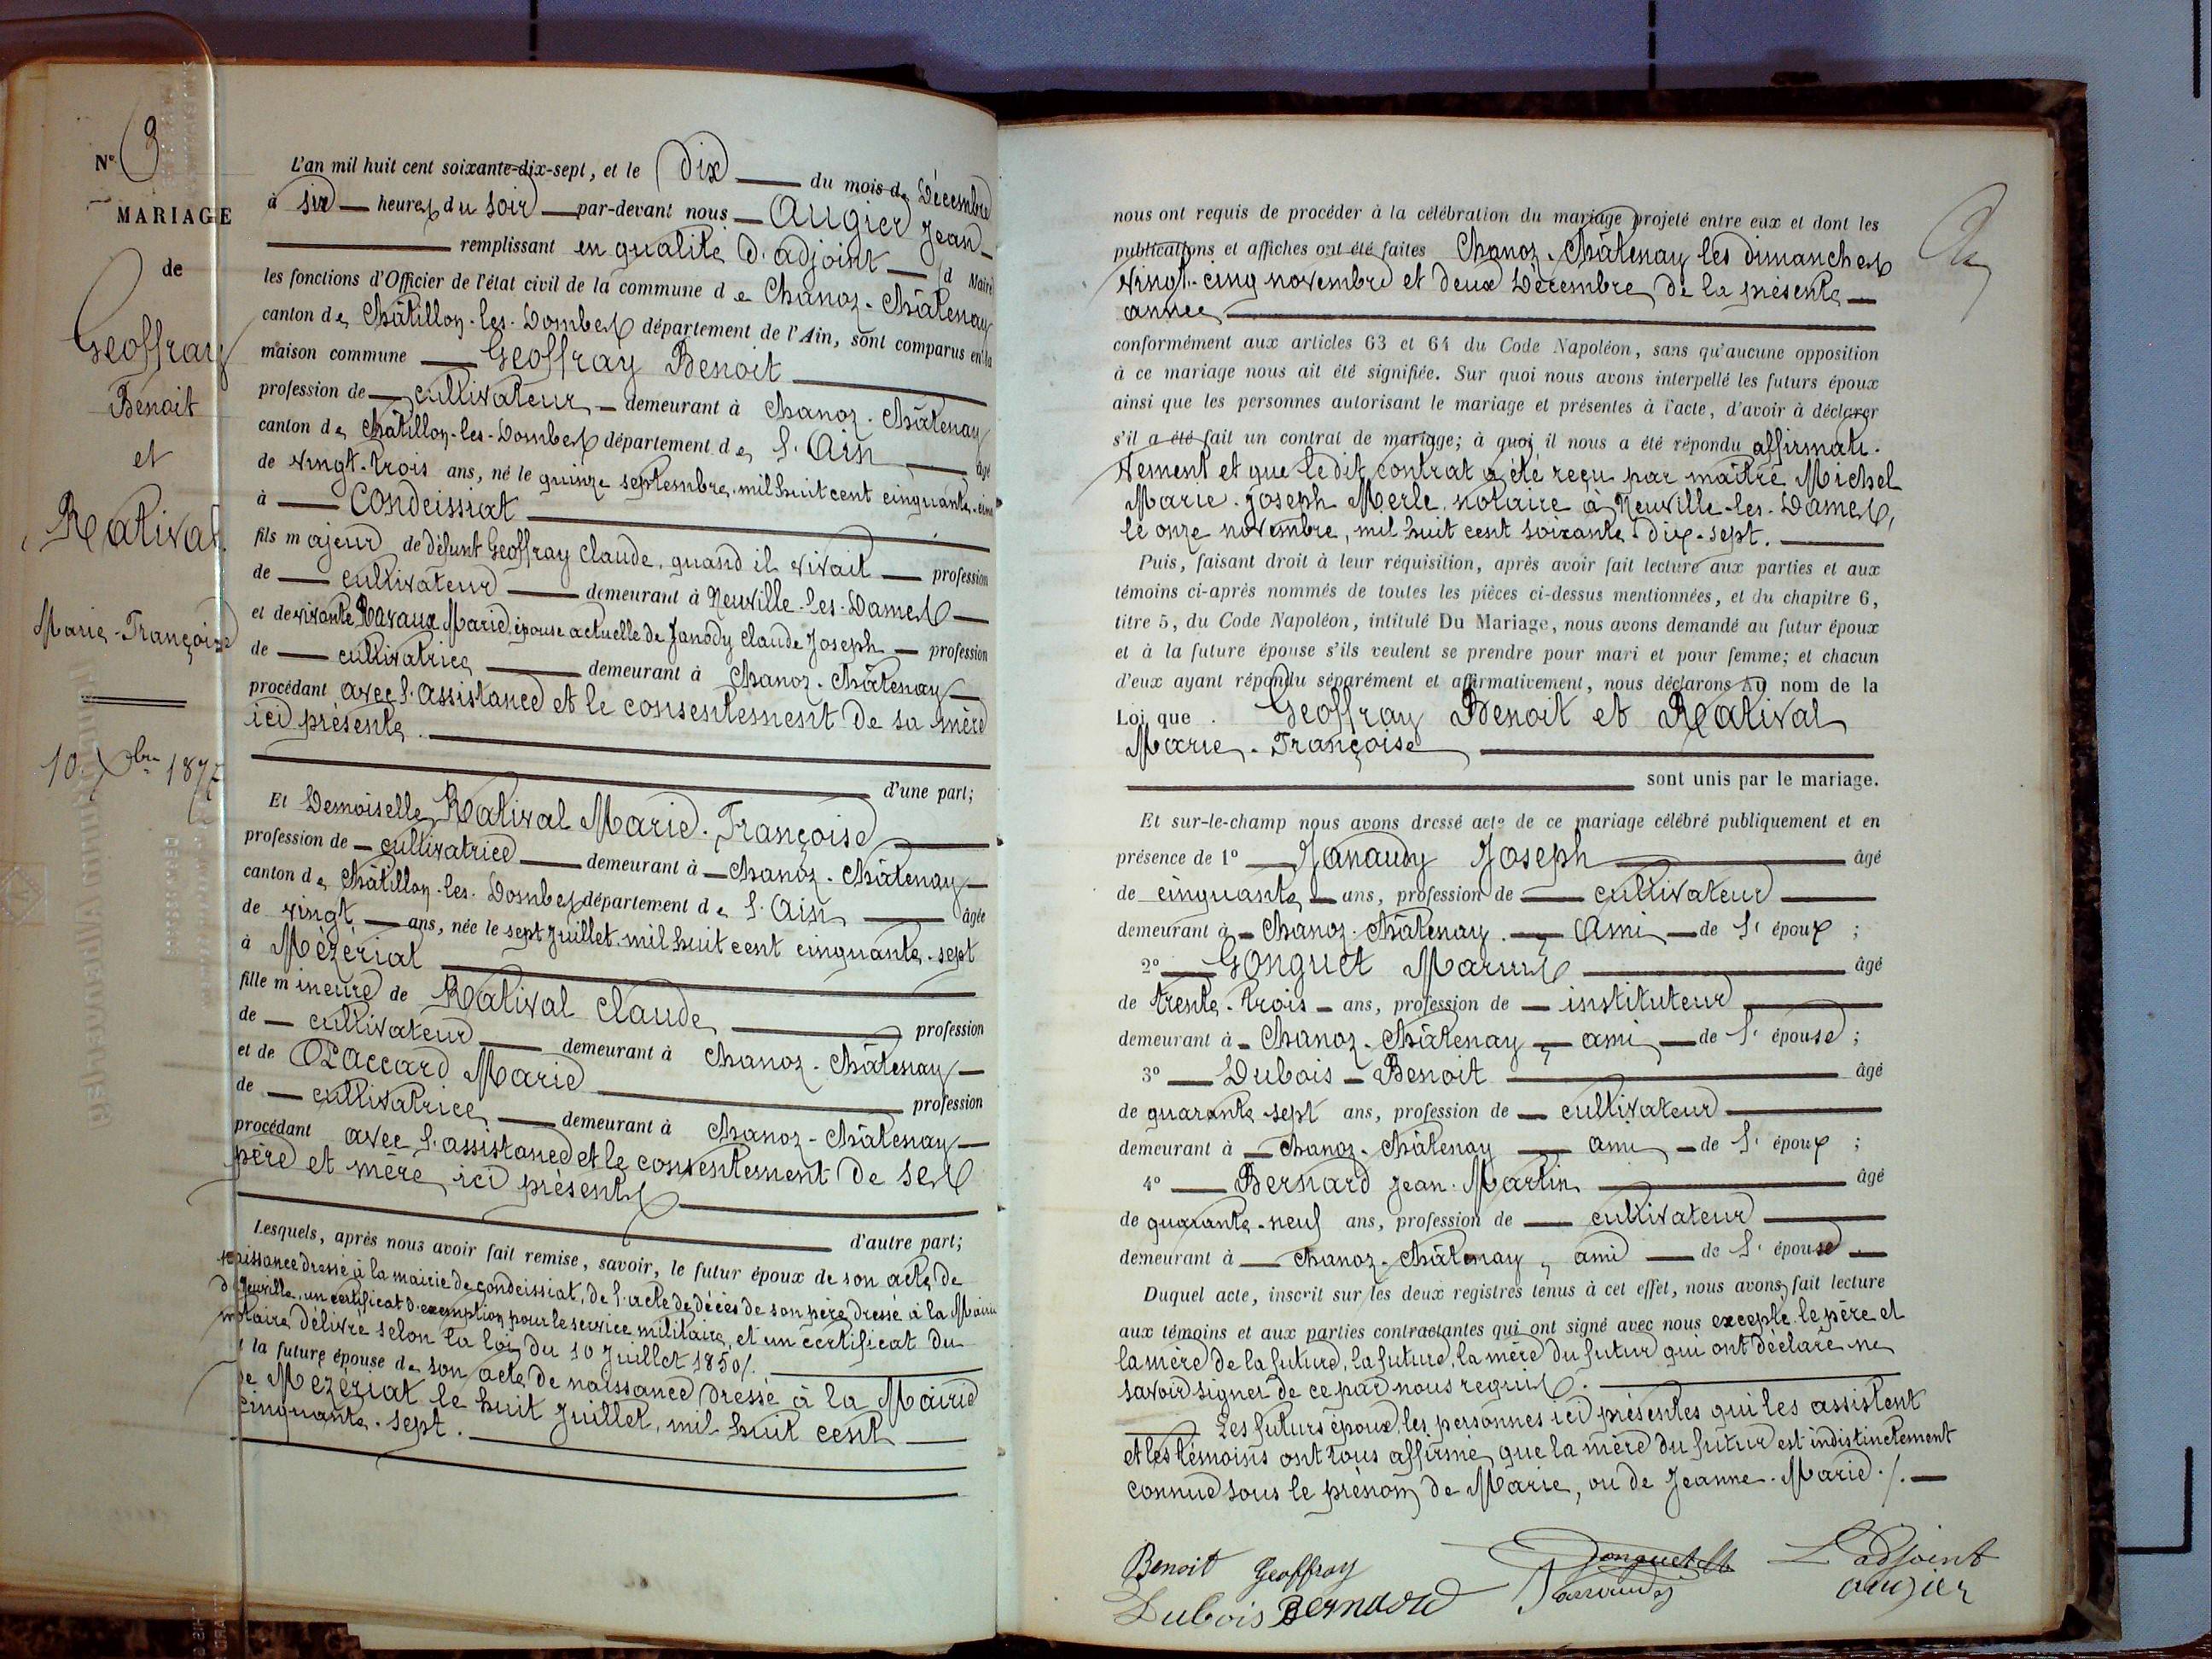 N° 9
MARIAGE
de
Geoffray
Benoit
et
Rativat
Marie-Françoise
10 Xbre 1877
L'an mil huit cent soixante-dix-sept, et le dix du mois de Décembre
à six heures du soir par-devant nous Augier Jean
remplissant en qualité d'adjoint Maire
les fonctions d'Officier de l'état civil de la commune de Chanoz-Châtenay
canton de Châtillon-les-Dombes département de l'Ain, sont comparus en la
maison commune Geoffray Benoit
profession de cultivateur demeurant à Chanoz-Châtenay
canton de Châtillon-les-Dombes département de l'Ain âgé
de vingt-trois ans, né le quinze septembre mil huit cent cinquante
à Condeissiat
fils majeur de défunt Geoffray Claude, quand il vivait profession
de cultivateur demeurant à Neuville-les-Dames
et de vivante Ravaux Marie, épouse actuelle de Janody Claude Joseph profession
de cultivatrice demeurant à Chanoz-Châtenay
procédant avec l'assistance et le consentement de sa mère
ici présente.
d'une part;
Et Demoiselle Rativat Marie-Françoise
profession de cultivatrice demeurant à Chanoz-Châtenay
canton de Châtillon-les-Dombes département de l'Ain âgée
de vingt ans, née le sept Juillet mil huit cent cinquante-sept
à Mézériat
fille mineure de Rativat Claude profession
de cultivateur demeurant à Chanoz-Châtenay
et de Placcard Marie profession
de cultivatrice demeurant à Chanoz-Châtenay
procédant avec l'assistance et le consentement de ses
père et mère ici présents
d'autre part;
Lesquels, après nous avoir fait remise, savoir, le futur époux de son acte de
naissance dressé à la mairie de Condeissiat, de l'acte de décès de son père dressé à la Mairie
de Neuville, un certificat d'exemption pour le service militaire, et un certificat du
notaire délivré selon la loi du 10 Juillet 1850/.
la future épouse de son acte de naissance dressé à la Mairie
de Mézériat le huit Juillet, mil huit cent
cinquante-sept.
nous ont requis de procéder à la célébration du mariage projeté entre eux et dont les
publications et affiches ont été faites Chanoz-Châtenay les dimanches
vingt-cinq novembre et deux Décembre de la présente
année
conformément aux articles 63 et 64 du Code Napoléon, sans qu'aucune opposition
à ce mariage nous ait été signifiée. Sur quoi nous avons interpellé les futurs époux
ainsi que les personnes autorisant le mariage et présentes à l'acte, d'avoir à déclarer
s'il a été fait un contrat de mariage; à quoi il nous a été répondu affirmati-
vement et que ledit contrat a été reçu par maître Michel
Marie-Joseph Merle, notaire à Neuville-les-Dames,
le onze novembre, mil huit cent soixante-dix-sept.
Puis, faisant droit à leur réquisition, après avoir fait lecture aux parties et aux
témoins ci-après nommés de toutes les pièces ci-dessus mentionnées, et du chapitre 6,
titre 5, du Code Napoléon, intitulé Du Mariage, nous avons demandé au futur époux
et à la future épouse s'ils veulent se prendre pour mari et pour femme; et chacun
d'eux ayant répondu séparément et affirmativement, nous déclarons au nom de la
Loi que Geoffray Benoit et Rativat
Marie-Françoise
sont unis par le mariage.
Et sur-le-champ nous avons dressé acte de ce mariage célébré publiquement et en
présence de 1° Janaudy Joseph âgé
de cinquante ans, profession de cultivateur
demeurant à Chanoz-Châtenay, ami de l'époux;
2° Gonguet Marius âgé
de trente-trois ans, profession de instituteur
demeurant à Chanoz-Châtenay, ami de l'épouse;
3° Dubois Benoit âgé
de quarante-sept ans, profession de cultivateur
demeurant à Chanoz-Châtenay ami de l'époux;
4° Bernard Jean-Martin âgé
de quarante-neuf ans, profession de cultivateur
demeurant à Chanoz-Châtenay, ami de l'épouse.
Duquel acte, inscrit sur les deux registres tenus à cet effet, nous avons fait lecture
aux témoins et aux parties contractantes qui ont signé avec nous excepté le père et
la mère de la future, la future, la mère du futur qui ont déclaré ne
savoir signer de ce par nous requis.
Les futurs époux, les personnes ici présentes qui les assistent
et les témoins ont tous affirmé que la mère du futur est indistinctement
connue sous le prénom de Marie, ou de Jeanne-Marie./.
Benoit Geoffray Gonguet M. L'adjoint
Dubois Bernard Janaudy augier